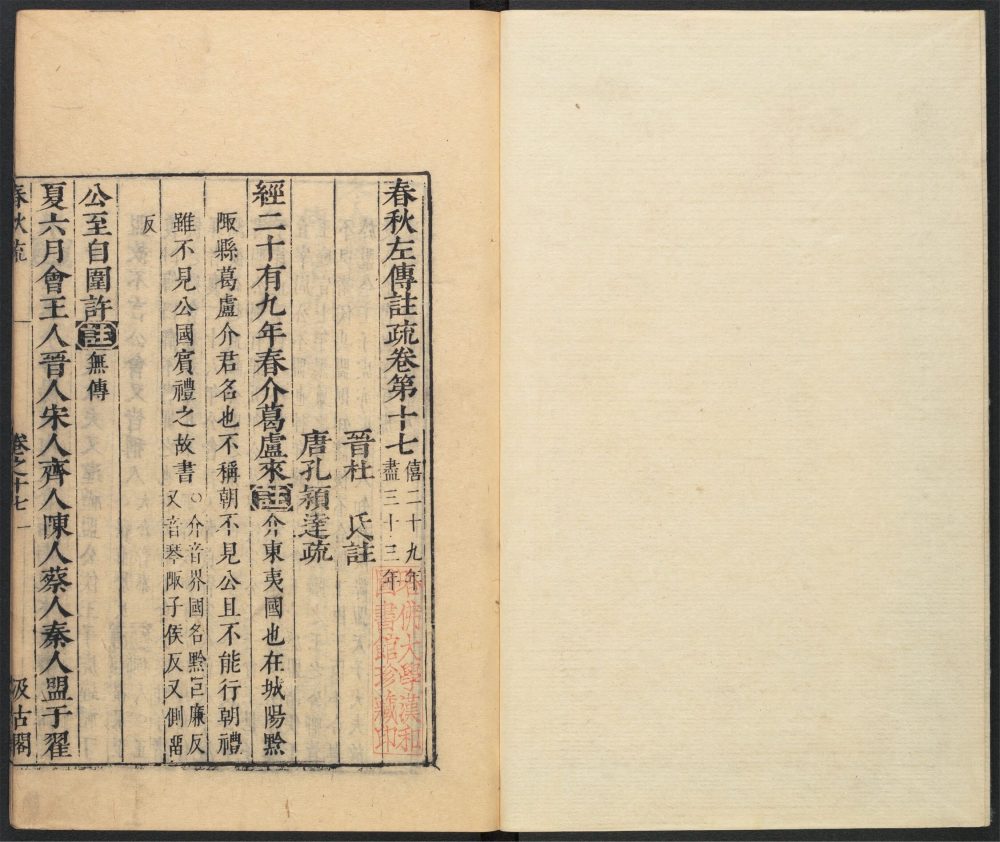 春秋左傳註疏卷第十七 僖二十九年
盡三十三年
晉杜 氏註
唐孔穎達疏
經二十有九年春介葛盧來註介東夷國也在城陽黔
陬縣葛盧介君名也不稱朝不見公且不能行朝禮
雖不見公國賓禮之故書○介音界國名黔巨廉反
又音琴陬子侯反又側留
反
公至自圍許註無傳
夏六月會王人晉人宋人齊人陳人蔡人秦人盟于翟
春秋疏 卷之十七 一 汲古閣
哈佛大學漢和
圖書館珍藏印